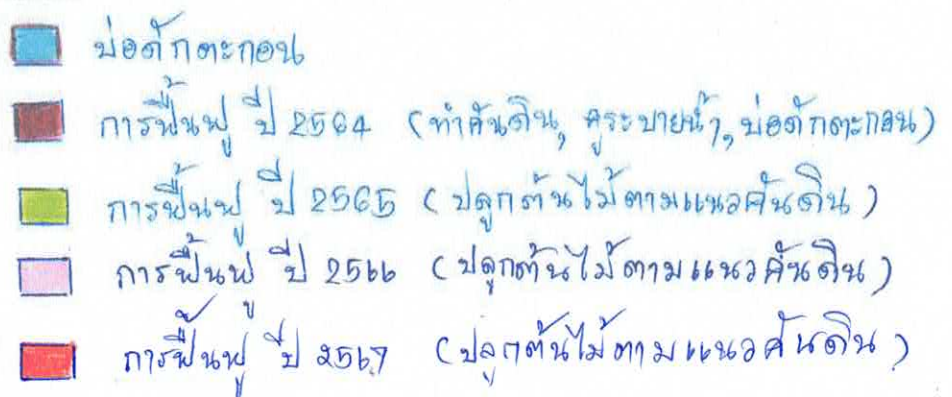 บ่อดักตะกอน
การฟื้นฟู ปี 2564 (ทำคันดิน, คูระบายน้ำ, บ่อดักตะกอน)
การฟื้นฟู ปี 2565 (ปลูกต้นไม้ตามแนวคันดิน)
การฟื้นฟู ปี 2566 (ปลูกต้นไม้ตามแนวคันดิน)
การฟื้นฟู ปี 2567 (ปลูกต้นไม้ตามแนวคันดิน)